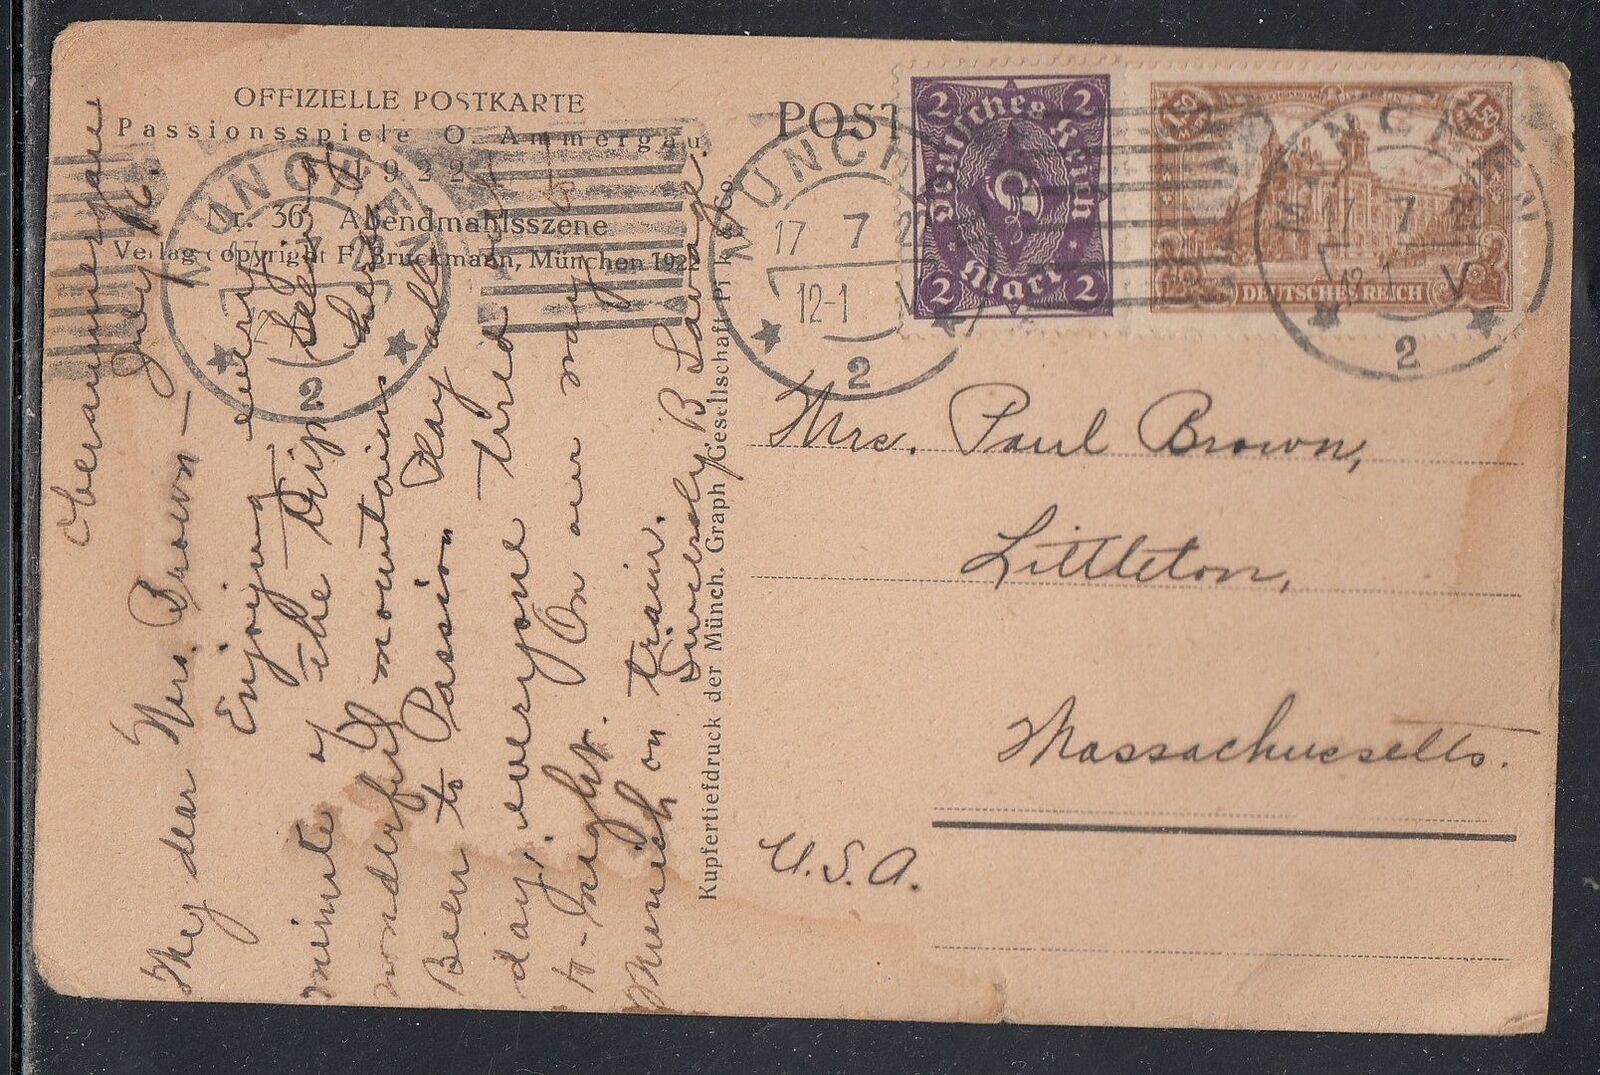 OFFIZIELLE POSTKARTE
Passionsspiele O. Ammergau
1922
Nr. 36 Abendmahlsszene
Verlag copyright F. Bruckmann, München 1922
POST
Kupfertiefdruck der Münch. Graph Gesellschaft Pick & Co.
MÜNCHEN
17 7
2
MÜNCH
17 7 22
12-1 V
2
MÜNCHEN
17 7 22
12-1 V
2
2 2
Deutsches Reich
Mark
2 2
1.50 1.50
DEUTSCHES REICH
Oberammergau
July 16.
My dear Mrs. Brown —
Enjoying every
minute of the trip.
wonderful mountains
Been to Passion Play all
day, everyone tired
to-night. On our way
Munich on train.
Sincerely B Savage.
Mrs. Paul Brown,
Littleton,
Massachusetts.
U.S.A.